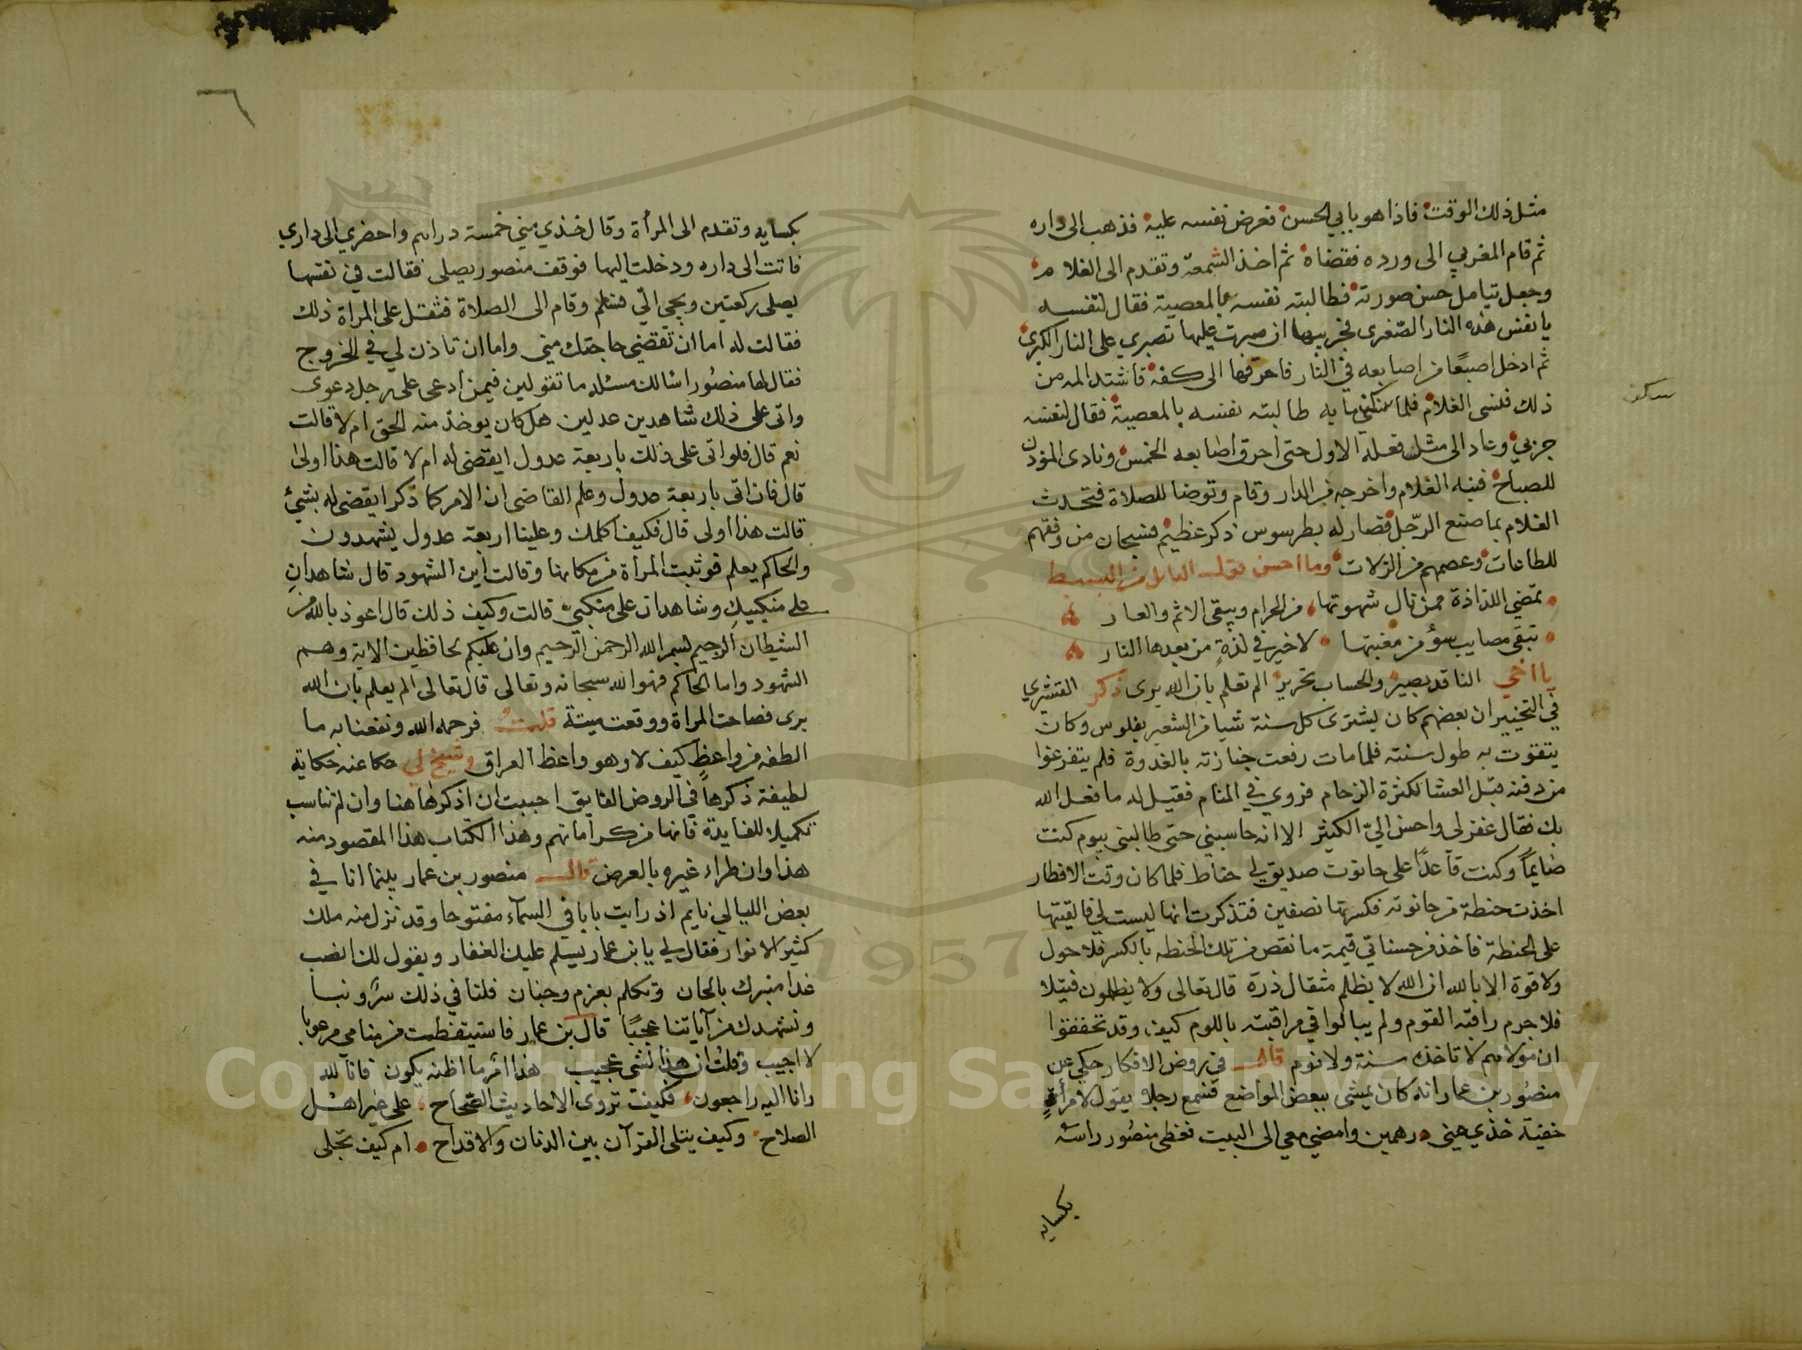 مثل ذلك الوقت فاذا هو بابي الحسن فعرض نفسه عليه فذهب الى داره
ثم قام المغربي الى ورده فقضاه ثم اخذ الشمعة وتقدم الى الغلام
وجعل يتامل حسن صورته فطالبته نفسه بالمعصية فقال لنفسه
يا نفس هذه النار الصغرى فجربيها ان صبرت عليها تصبري على النار الكبرى
ثم ادخل اصبعا من اصابعه في النار فاحرقها الى كفه فاشتد المه من
ذلك فنسى الغلام فلما سكن ما به طالبته نفسه بالمعصية فقال لنفسه
جربي وعاد الى مثل فعله الاول حتى احرق اصابعه الخمس ونادى المؤذن
للصباح فنبه الغلام واخرجه من الدار وقام وتوضا للصلاة فتحدث
الغلام بما صنع الرجل فصار له بطرسوس ذكر عظيم فسبحان من وفقهم
للطاعات وعصمهم من الزلات وما احسن قول القائل من البسيط
تمضي اللذاذة ممن نال شهوتها من الحرام ويبقى الاثم والعار
تبقى مصايب سؤ من مغبتها لا خير في لذة من بعدها النار
يا اخي الناقد بصير والحساب تحرير الم تعلم بان الله يرى ذكر القشيري
في التحبير ان بعضهم كان يشترى كل سنة شيا من الشعير بفلوس وكان
يتقوت به طول سنته فلما مات رفعت جنازته بالغدوة فلم يتفرغوا
من دفنه قبل العشا لكثرة الزحام فروي في المنام فقيل له ما فعل الله
بك فقال غفر لي واحسن الي الكثير الا انه حاسبني حتى طالبني بيوم كنت
صايما وكنت قاعدا على حانوت صديق لي حناط فلما كان وقت الافطار
اخذت حنطة من حانوته فكسرتها نصفين فتذكرت انها ليست لي فالقيتها
على الحنطة فاخذ من حسناتي قيمة ما نقص من تلك الحنطه بالكسر فلا حول
ولا قوة الا بالله ان الله لا يظلم مثقال ذرة قال تعالى ولا يظلمون فتيلا
فلا جرم راقبه القوم ولم يبالوا في مراقبته باللوم كيف وقد تحققوا
ان مولاهم لا تاخذه سنة ولا نوم قال في روض الافكار حكي عن
منصور بن عمار انه كان يمشى ببعض المواضع فسمع رجلا يقول لامرأة
خفية خذي مني درهمين وامضي معي الى البيت فغطى منصور راسه
بكسايه
سكن
بكسايه وتقدم الى المرأة وقال خذي مني خمسة دراهم واحضري الى داري
فاتت الى داره ودخلت اليها فوقف منصور يصلى فقالت في نفسها
يصلى ركعتين ويجي الي فسلم وقام الى الصلاة فثقل على المرأة ذلك
فقالت له اما ان تقضي حاجتك مني واما ان تاذن لي في الخروج
فقال لها منصور اسالك مسئله ما تقولين فيمن ادعى على رجل دعوى
واتى على ذلك شاهدين عدلين هل كان يوخذ منه الحق ام لا قالت
نعم قال فلو اتى على ذلك باربعة عدول ايقضى له ام لا قالت هذا اولى
قال فان اتى باربعة عدول وعلم القاضى ان الامر كما ذكر ايقضى له بشيئ
قالت هذا اولى قال فكيف اكلمك وعلينا اربعة عدول يشهدون
والحاكم يعلم فوثبت المرأة من مكانها وقالت اين الشهود قال شاهدان
على منكبيك وشاهدان على منكبي قالت وكيف ذلك قال اعوذ بالله من
الشيطان الرجيم بسم الله الرحمن الرحيم وان عليكم لحافظين الاية وهم
الشهود واما الحاكم فهو الله سبحانه وتعالى قال تعالى الم يعلم بان الله
يرى فصاحت المرأة ووقعت ميتة قلت فرحمه الله ونفعنا به ما
الطفه من واعظ كيف لا وهو واعظ العراق وشيخ لي حكا عنه حكاية
لطيفة ذكرها في الروض الفايق احببت ان اذكرها هنا وان لم تناسب
تكميلا للفايدة فانها من كراماتهم وهذا الكتاب هذا المقصود منه
هذا وان طراء غيره بالعرض قال منصور بن عمار بينما انا في
بعض الليالي نايم اذ رايت بابا في السمآء مفتوحا وقد نزل منه ملك
كثير الانوار فقال لي يا بن عمار يسلم عليك الغفار ويقول لك انصب
غدا منبرك بالحان وتكلم بعزم وجنان فلنا في ذلك سر ونبا
ونشهدك من آياتنا عجبا قال بن عمار فاستيقظت من منامي مرعوبا
لا اجيب وقلت ان هذا لشى عجيب هذا امر ما اظنه يكون فانا لله
وانا اليه راجعون فكيف تروى الاحاديث الصحاح على غير اهل
الصلاح وكيف يتلى القرآن بين الدنان والاقداح ام كيف تجلى
٦
1957
Copyright © King Saud University